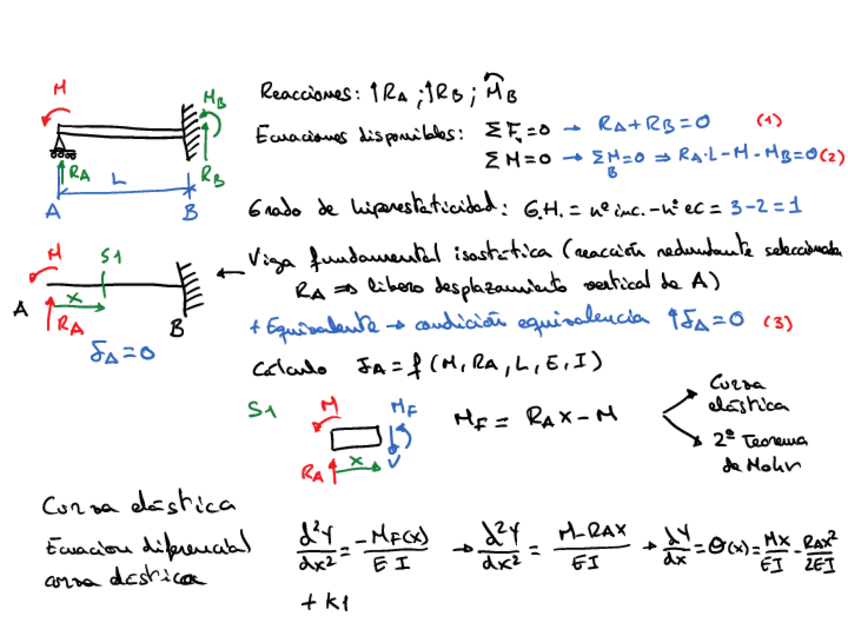 M
M_B
R_A
L
R_B
A
B
Reacciones: ↑R_A ; ↑R_B ; M_B
Ecuaciones disponibles: ΣF_v=0 → R_A+R_B=0 (1)
ΣM=0 → ΣM_B=0 ⇒ R_A·L-M-M_B=0 (2)
Grado de hiperestaticidad: G.H.= nº inc.-nº ec = 3-2=1
M
S1
A
x
R_A
B
δ_A=0
← Viga fundamental isostática (reacción redundante seleccionada
R_A ⇒ libero desplazamiento vertical de A)
+ Equivalente → condición equivalencia ↑δ_A=0 (3)
Cálculo δ_A=f(M, R_A, L, E, I)
S1
M
M_F
R_A
x
V
M_F = R_A x - M
Curva
elástica
2º Teorema
de Mohr
Curva elástica
Ecuación diferencial
curva elástica
d²y/dx² = -M_F(x)/EI → d²y/dx² = M-R_A x/EI → dy/dx = θ(x) = Mx/EI - R_A x²/2EI
+ k1